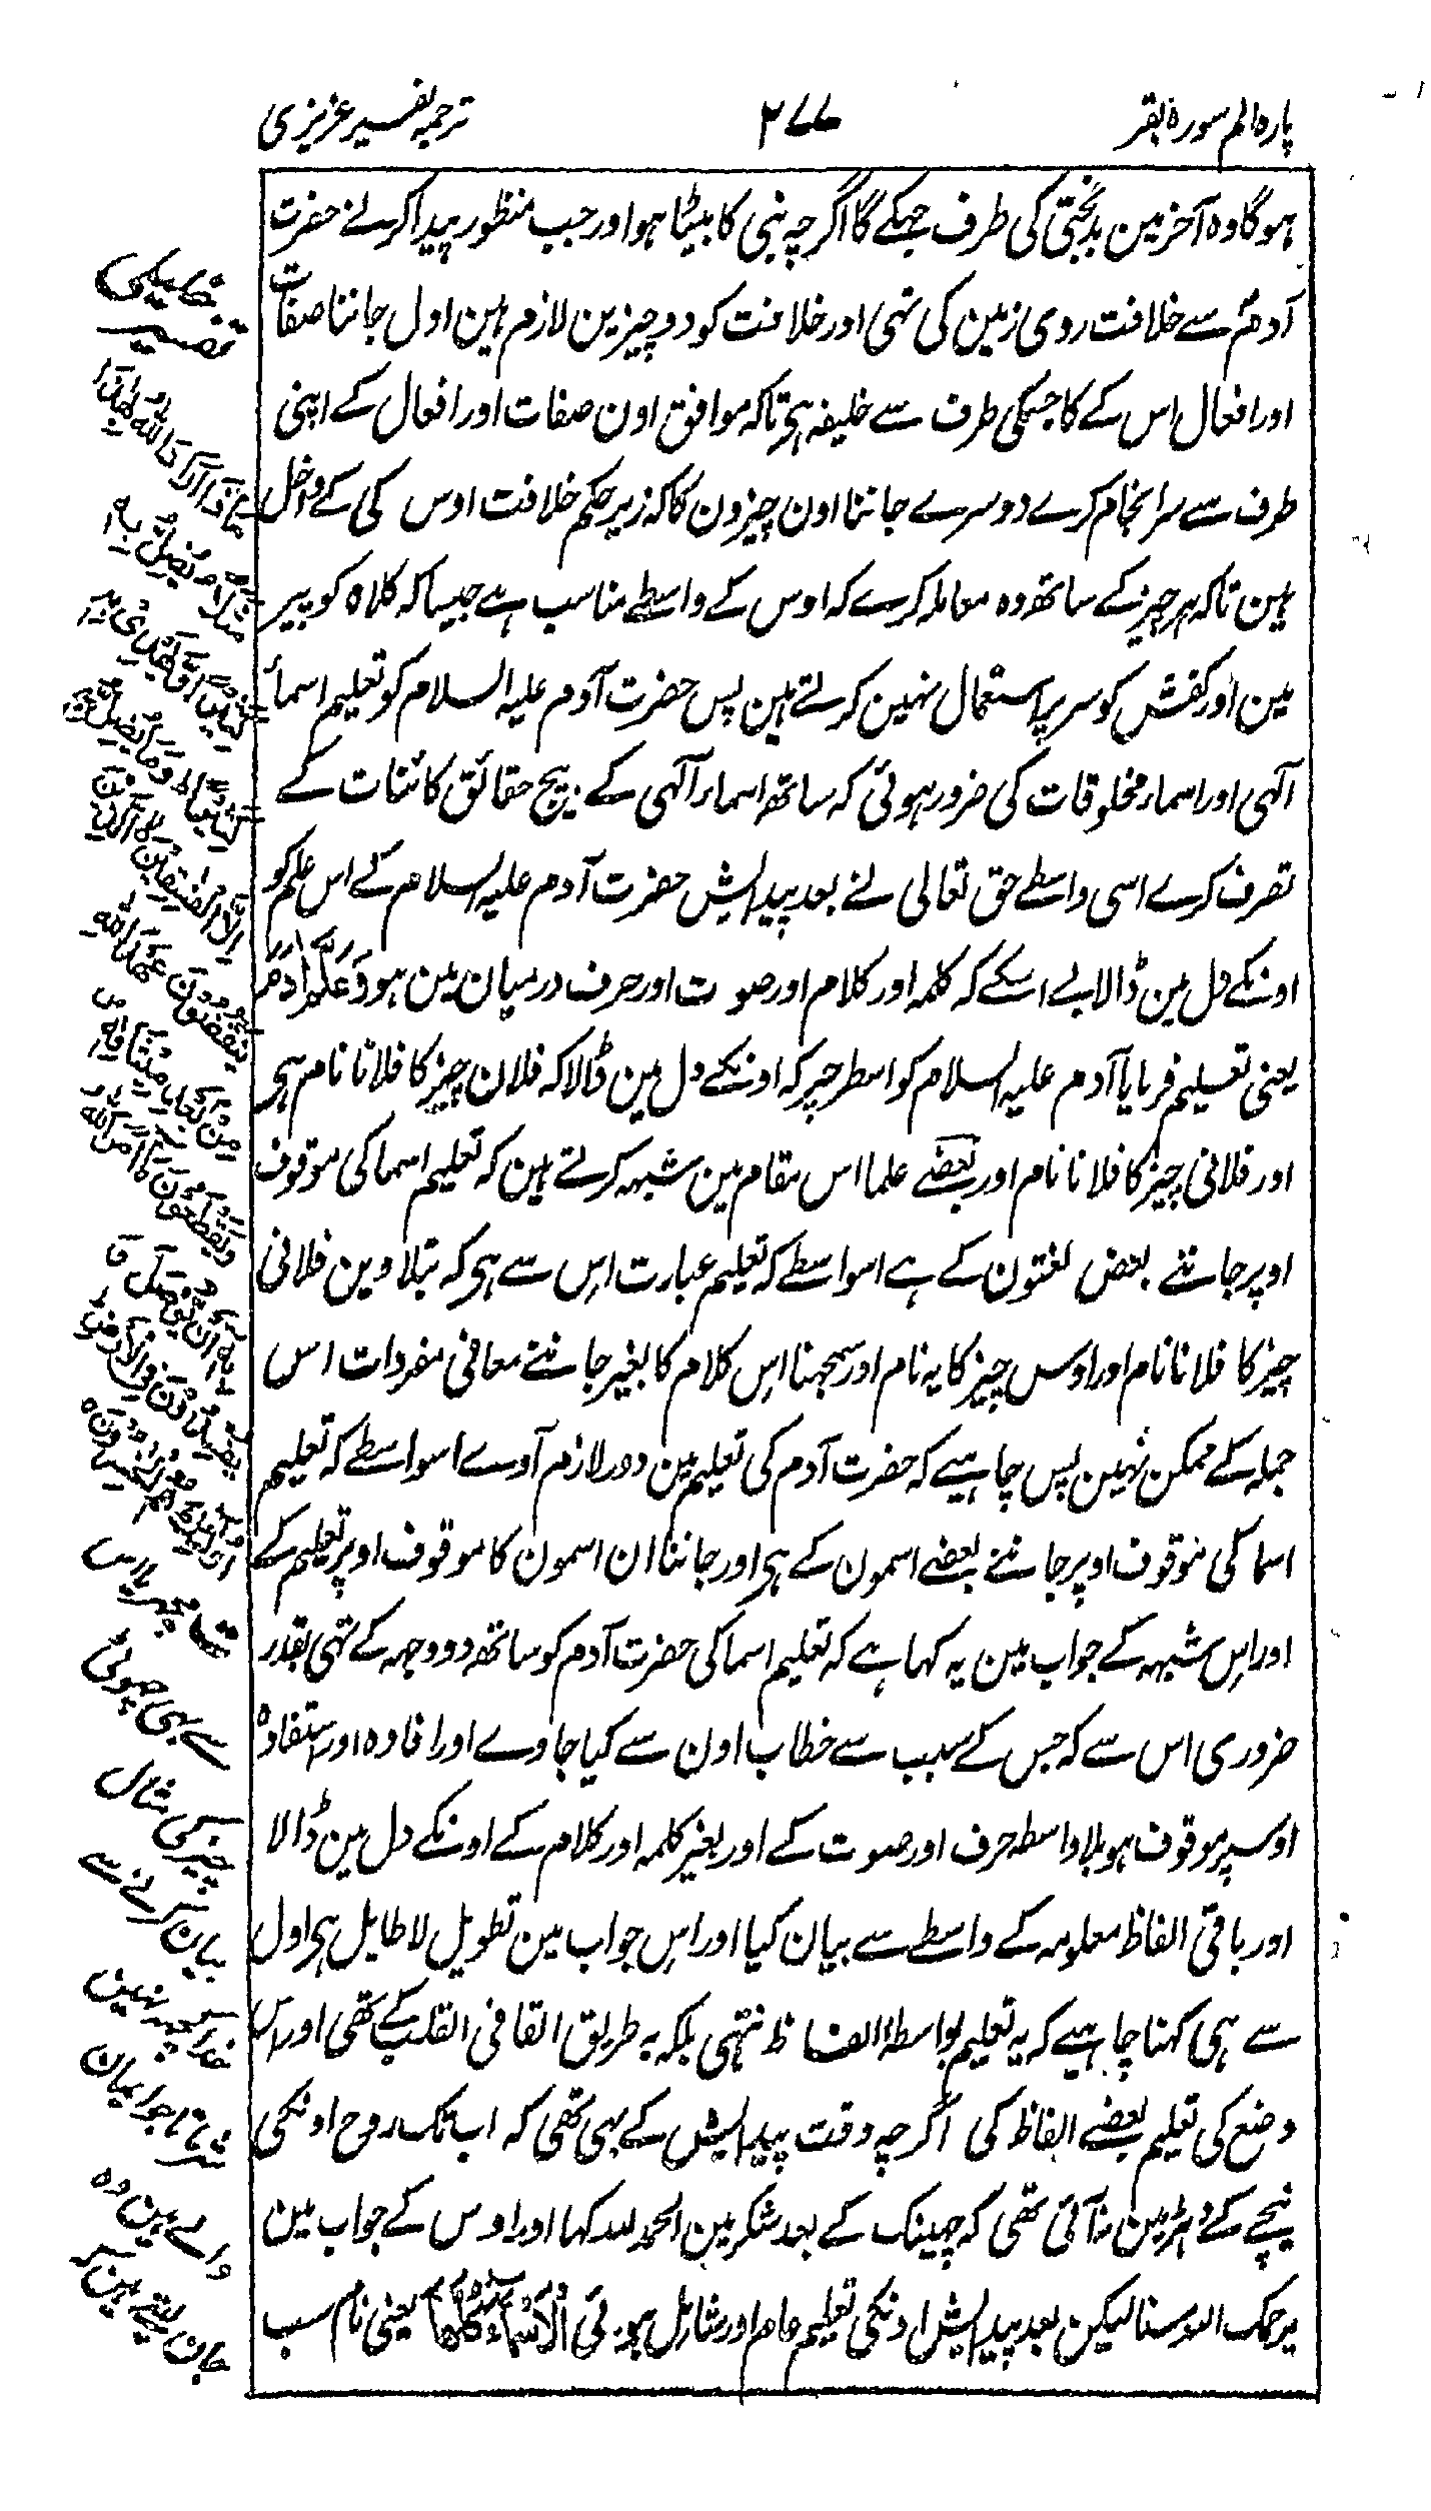 پاره الم سوره بقر
۲۷۷
ترجمه تفسیر عزیزی
ہوگا وہ آخر مین بدبختی کی طرف جہکے گا اگرچہ نبی کا بیٹا ہو اور جب منظور پیدا کرنے حضرت
آدم سے خلافت روی زمین کی تہی اور خلافت کو دو چیزین لازم ہین اول جاننا صفات
اور افعال اس کے کا جسکی طرف سے خلیفہ ہی تاکہ موافق اون صفات اور افعال کے اپنی
طرف سے سرانجام کرے دوسرے جاننا اون چیزون کا کہ زیر حکم خلافت اوس کی کے داخل
ہین تاکہ ہر چیز کے ساتھ وہ معاملہ کرے کہ اوس کے واسطے مناسب ہے جیسا کہ کلاہ کو پیر
مین اور کفش کو سر پر استعمال نہین کرتے ہین پس حضرت آدم علیہ السلام کو تعلیم اسمائے
آلہی اور اسماء مخلوقات کی ضرور ہوئی کہ ساتھ اسماء آلہی کے بیچ حقائق کائنات کے
تصرف کرے اسی واسطے حق تعالی نے بعد پیدایش حضرت آدم علیہ السلام کے اس علم کو
اونکے دل مین ڈالا بے اسکے کہ کلمہ اور کلام اور صوت اور حرف درمیان مین ہو وَعَلَّمَ اٰدَمَ
یعنی تعلیم فرمایا آدم علیہ السلام کو اسطرحپر کہ اونکے دل مین ڈالا کہ فلان چیز کا فلانا نام ہی
اور فلانی چیز کا فلانا نام اور بعضے علما اس مقام مین شبہہ کرتے ہین کہ تعلیم اسما کی موقوف
اوپر جاننے بعض لغتون کے ہے اسواسطے کہ تعلیم عبارت اس سے ہی کہ بتلاوین فلانی
چیز کا فلانا نام اور اوس چیز کا یہ نام اور سمجہنا اس کلام کا بغیر جاننے معانی مفردات اس
جملہ کے ممکن نہین پس چاہیے کہ حضرت آدم کی تعلیم مین دور لازم آوے اسواسطے کہ تعلیم
اسما کی موقوف اوپر جاننے بعضے اسمون کے ہی اور جاننا ان اسمون کا موقوف اوپر تعلیم کے
اور اس شبہہ کے جواب مین یہ کہا ہے کہ تعلیم اسما کی حضرت آدم کو ساتھ دو وجہہ کے تہی بقدر
ضروری اس سے کہ جس کے سبب سے خطاب اون سے کیا جاوے اور افادہ اور استفادہ
اوسپر موقوف ہو بلا واسطہ حرف اور صوت کے اور بغیر کلمہ اور کلام کے اونکے دل مین ڈالا
اور باقی الفاظ معلومہ کے واسطے سے بیان کیا اور اس جواب مین تطویل لا طایل ہی اول
سے ہی کہنا چاہیے کہ یہ تعلیم بواسطہ الفاظ نتہی بلکہ بہ طریق القا فی القلب کے تھی اور اس
وضع کی تعلیم بعضے الفاظ کی اگرچہ وقت پیدایش کے بہی تھی کہ اب تک روح اونکی
نیچے کے دہڑ مین نہ آئی تھی کہ چہینک کے بعد شکر مین الحمد للہ کہا اور اوس کے جواب مین
یرحمک اللہ سنا لیکن بعد پیدایش اونکی تعلیم عام اور شامل ہوئی الْاَسْمَآءَ كُلَّهَا یعنی نام سب
تفسیر
مَاذَآ اَرَادَ اللّٰهُ بِهٰذَا
مَثَلًا يُضِلُّ بِهٖ
كَثِيْرًا وَّيَهْدِيْ بِهٖ
كَثِيْرًا وَمَا يُضِلُّ بِهٖٓ
اِلَّا الْفٰسِقِيْنَ الَّذِيْنَ
يَنْقُضُوْنَ عَهْدَ اللّٰهِ
مِنْۢ بَعْدِ مِيْثَاقِهٖ
وَيَقْطَعُوْنَ مَآ اَمَرَ اللّٰهُ
بِهٖٓ اَنْ يُّوْصَلَ وَ
يُفْسِدُوْنَ فِي الْاَرْضِ
اُولٰٓئِكَ هُمُ الْخٰسِرُوْنَ
ت مچہر یا اس
سے بہی چہوٹی
چیز کی مثال
بیان کرنے سے
خدا کچہہ نہین
شرماتا جو ایمان
والے ہین وہ
جان لیتے ہین کہ